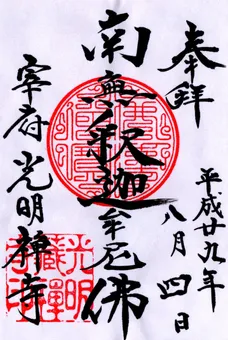 奉拜
平成廿九年
八月四日
南無釈迦牟尼佛
宰府光明禅寺
光明
蔵禅
寺